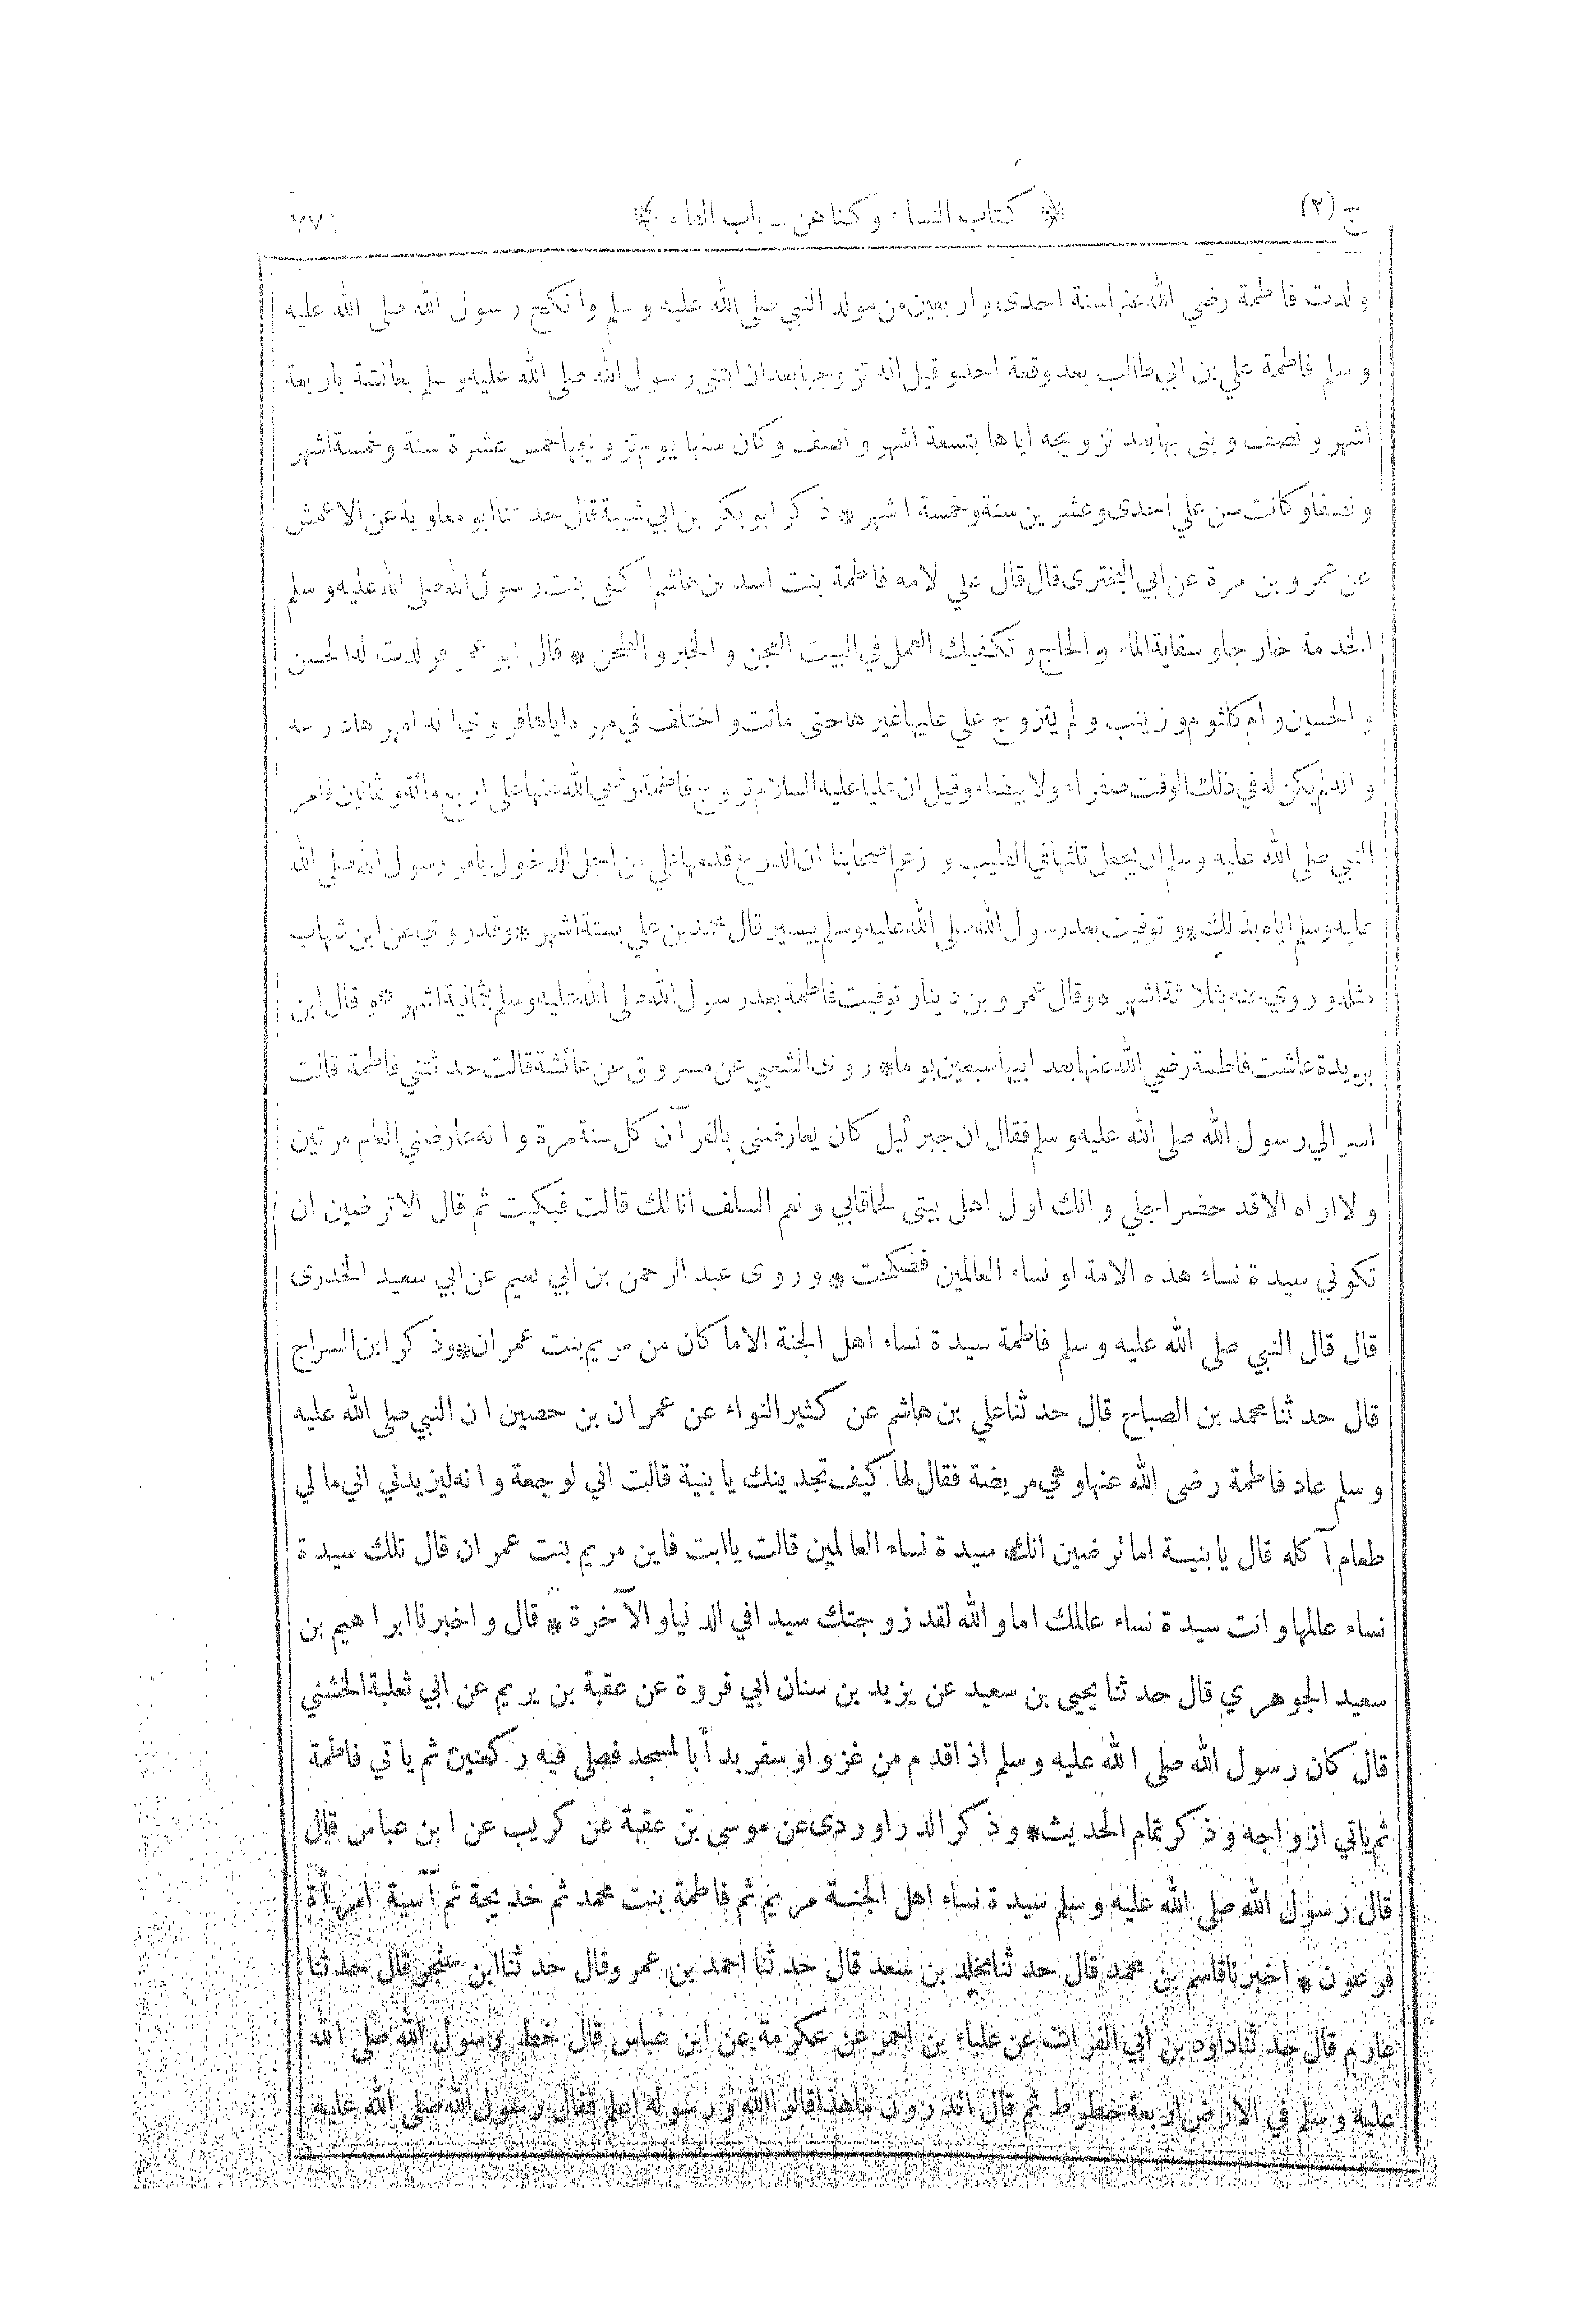 ج (٢) ﴿ كتاب النساء وكناهن ــ باب الفاء ﴾
ولدت فاطمة رضي الله عنها سنة احدى واربعين من مولد النبي صلى الله عليه وسلم وانكح رسول الله صلى الله عليه
وسلم فاطمة علي بن ابي طالب بعد وقعة احد وقيل انه تزوجها بعد ان ابتنى رسول الله صلى الله عليه وسلم بعائشة باربعة
اشهر ونصف وبنى بها بعد تزويجه اياها بتسعة اشهر ونصف وكان سنها يوم تزويجها خمس عشرة سنة وخمسة اشهر
ونصفا وكانت سن علي احدى وعشرين سنة وخمسة اشهر * ذكر ابو بكر بن ابي شيبة قال حدثنا ابو معاوية عن الاعمش
عن عمرو بن مرة عن ابي البختري قال قال علي لامه فاطمة بنت اسد بن هاشم اكفي بنت رسول الله صلى الله عليه وسلم
الخدمة خارجا وسقاية الماء والحاج وتكفيك العمل في البيت العجن والخبز والطحن * قال ابو عمر فولدت له الحسن
والحسين وام كلثوم وزينب ولم يتزوج علي عليها غيرها حتى ماتت واختلف في مهره اياها فروي انه امهرها درعه
وانه لم يكن له في ذلك الوقت صفراء ولا بيضاء وقيل ان عليا عليه السلام تزوج فاطمة رضي الله عنها على اربع مائة وثمانين فامر
النبي صلى الله عليه وسلم ان يجعل ثلثها في الطيب وزعم اصحابنا ان الدرع قدمها علي من اجل الدخول بامر رسول الله صلى الله
عليه وسلم اياه بذلك * وتوفيت بعد رسول الله صلى الله عليه وسلم بيسير قال محمد بن علي بستة اشهر * وقد روي عن ابن شهاب
مثله وروي عنه بثلاثة اشهر * وقال عمرو بن دينار توفيت فاطمة بعد رسول الله صلى الله عليه وسلم بثمانية اشهر * وقال ابن
بريدة عاشت فاطمة رضي الله عنها بعد ابيها سبعين يوما * روى الشعبي عن مسروق عن عائشة قالت حدثتني فاطمة قالت
اسر الي رسول الله صلى الله عليه وسلم فقال ان جبرئيل كان يعارضني بالقرآن كل سنة مرة وانه عارضني العام مرتين
ولا اراه الا قد حضر اجلي وانك اول اهل بيتي لحاقا بي ونعم السلف انا لك قالت فبكيت ثم قال الا ترضين ان
تكوني سيدة نساء هذه الامة او نساء العالمين فضحكت * وروى عبد الرحمن بن ابي نعيم عن ابي سعيد الخدرى
قال قال النبي صلى الله عليه وسلم فاطمة سيدة نساء اهل الجنة الا ما كان من مريم بنت عمران * وذكر ابن السراج
قال حدثنا محمد بن الصباح قال حدثنا علي بن هاشم عن كثير النواء عن عمران بن حصين ان النبي صلى الله عليه
وسلم عاد فاطمة رضى الله عنها وهي مريضة فقال لها كيف تجدينك يا بنية قالت اني لوجعة وانه ليزيدني اني مالي
طعام آكله قال يا بنية اما ترضين انك سيدة نساء العالمين قالت يا ابت فاين مريم بنت عمران قال تلك سيدة
نساء عالمها وانت سيدة نساء عالمك اما والله لقد زوجتك سيدا في الدنيا والآخرة * قال واخبرنا ابراهيم بن
سعيد الجوهري قال حدثنا يحيى بن سعيد عن يزيد بن سنان ابي فروة عن عقبة بن يريم عن ابي ثعلبة الخشني
قال كان رسول الله صلى الله عليه وسلم اذا قدم من غزو او سفر بدأ بالمسجد فصلى فيه ركعتين ثم ياتي فاطمة
ثم ياتي ازواجه وذكر تمام الحديث * وذكر الدراوردى عن موسى بن عقبة عن كريب عن ابن عباس قال
قال رسول الله صلى الله عليه وسلم سيدة نساء اهل الجنة مريم ثم فاطمة بنت محمد ثم خديجة ثم آسية امرأة
فرعون * اخبرنا قاسم بن محمد قال حدثنا مخلد بن سعد قال حدثنا احمد بن عمر وقال حدثنا ابن سنجر قال حدثنا
عارم قال حدثنا داود بن ابي الفرات عن علباء بن احمر عن عكرمة عن ابن عباس قال خط رسول الله صلى الله
عليه وسلم في الارض اربعة خطوط ثم قال اتدرون ما هذا قالوا الله ورسوله اعلم فقال رسول الله صلى الله عليه